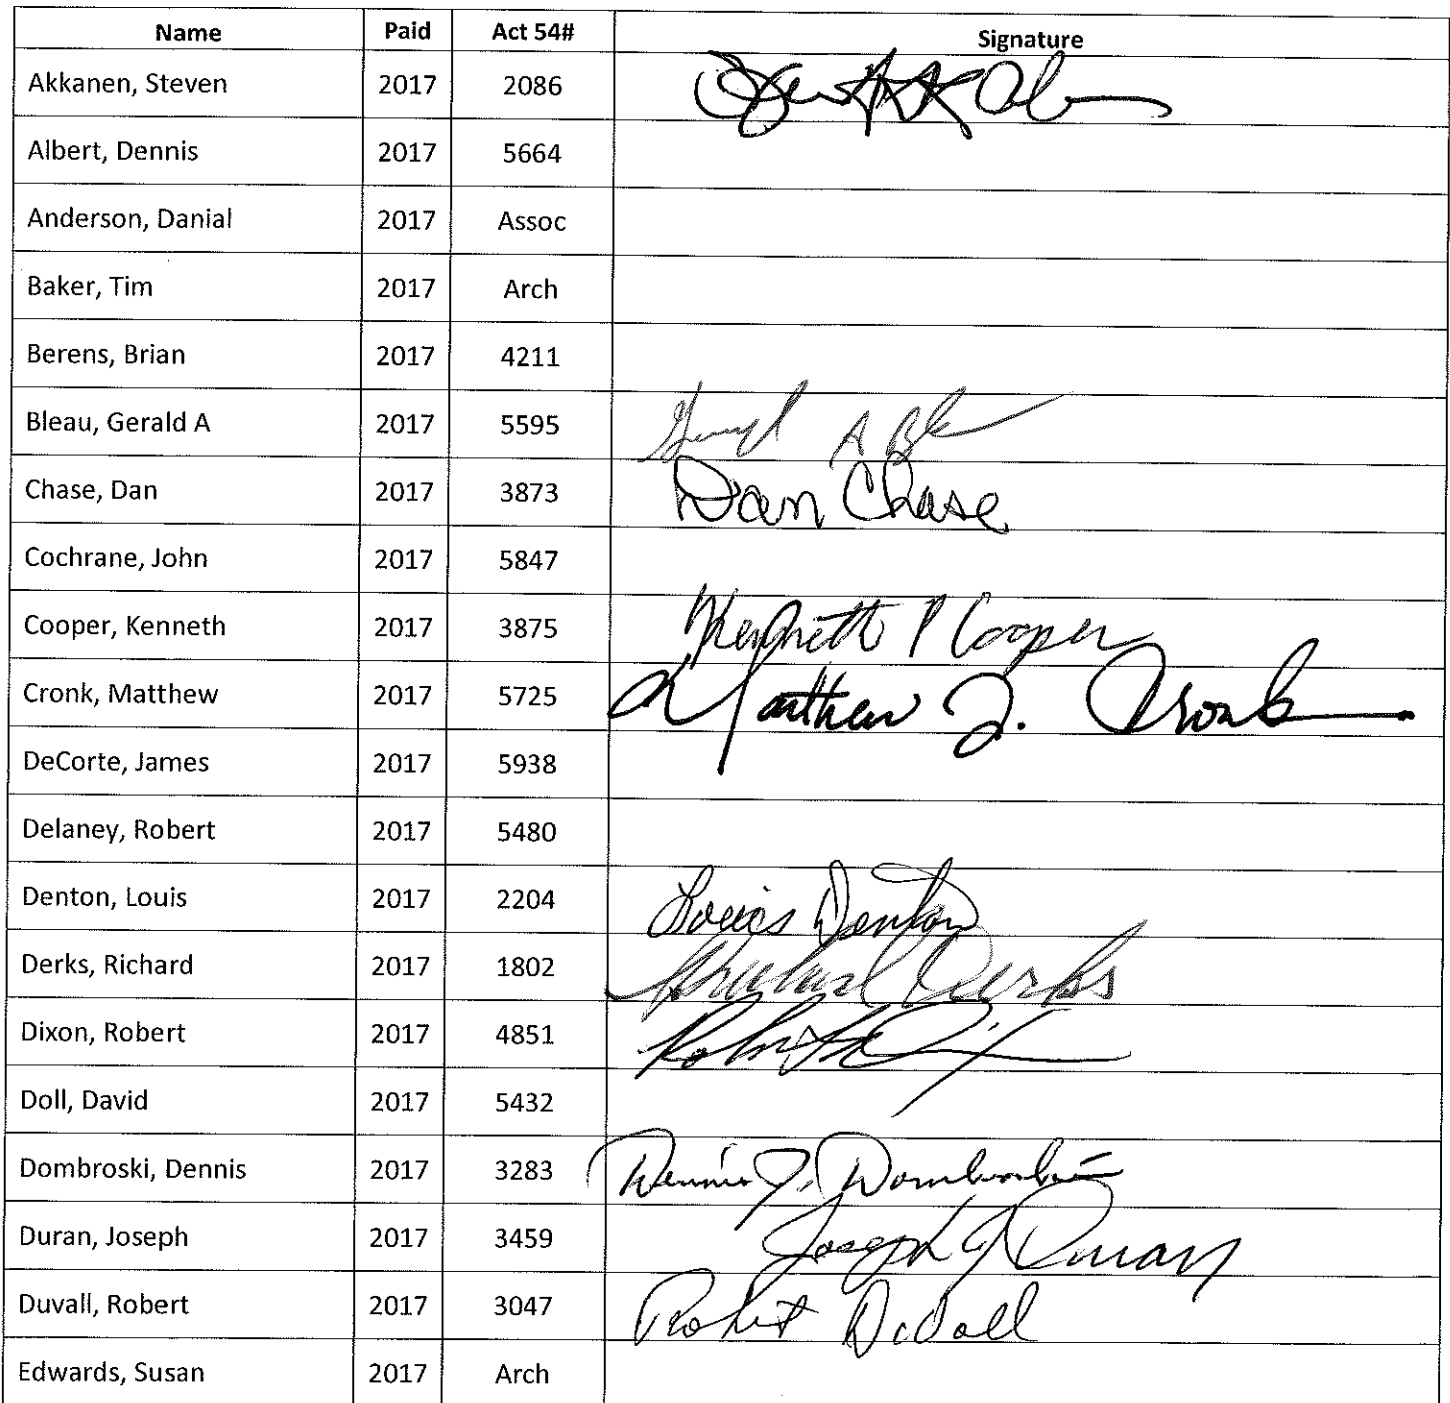 Name Paid Act 54# Signature
Akkanen, Steven 2017 2086
Albert, Dennis 2017 5664
Anderson, Danial 2017 Assoc
Baker, Tim 2017 Arch
Berens, Brian 2017 4211
Bleau, Gerald A 2017 5595 Gerald A Bl
Chase, Dan 2017 3873 Dan Chase
Cochrane, John 2017 5847
Cooper, Kenneth 2017 3875 Kenneth P Cooper
Cronk, Matthew 2017 5725 Matthew J. Cronk
DeCorte, James 2017 5938
Delaney, Robert 2017 5480
Denton, Louis 2017 2204 Louis Denton
Derks, Richard 2017 1802 Richard Derks
Dixon, Robert 2017 4851
Doll, David 2017 5432
Dombroski, Dennis 2017 3283 Dennis J. Dombroski
Duran, Joseph 2017 3459 Joseph J Duran
Duvall, Robert 2017 3047 Robert Duvall
Edwards, Susan 2017 Arch